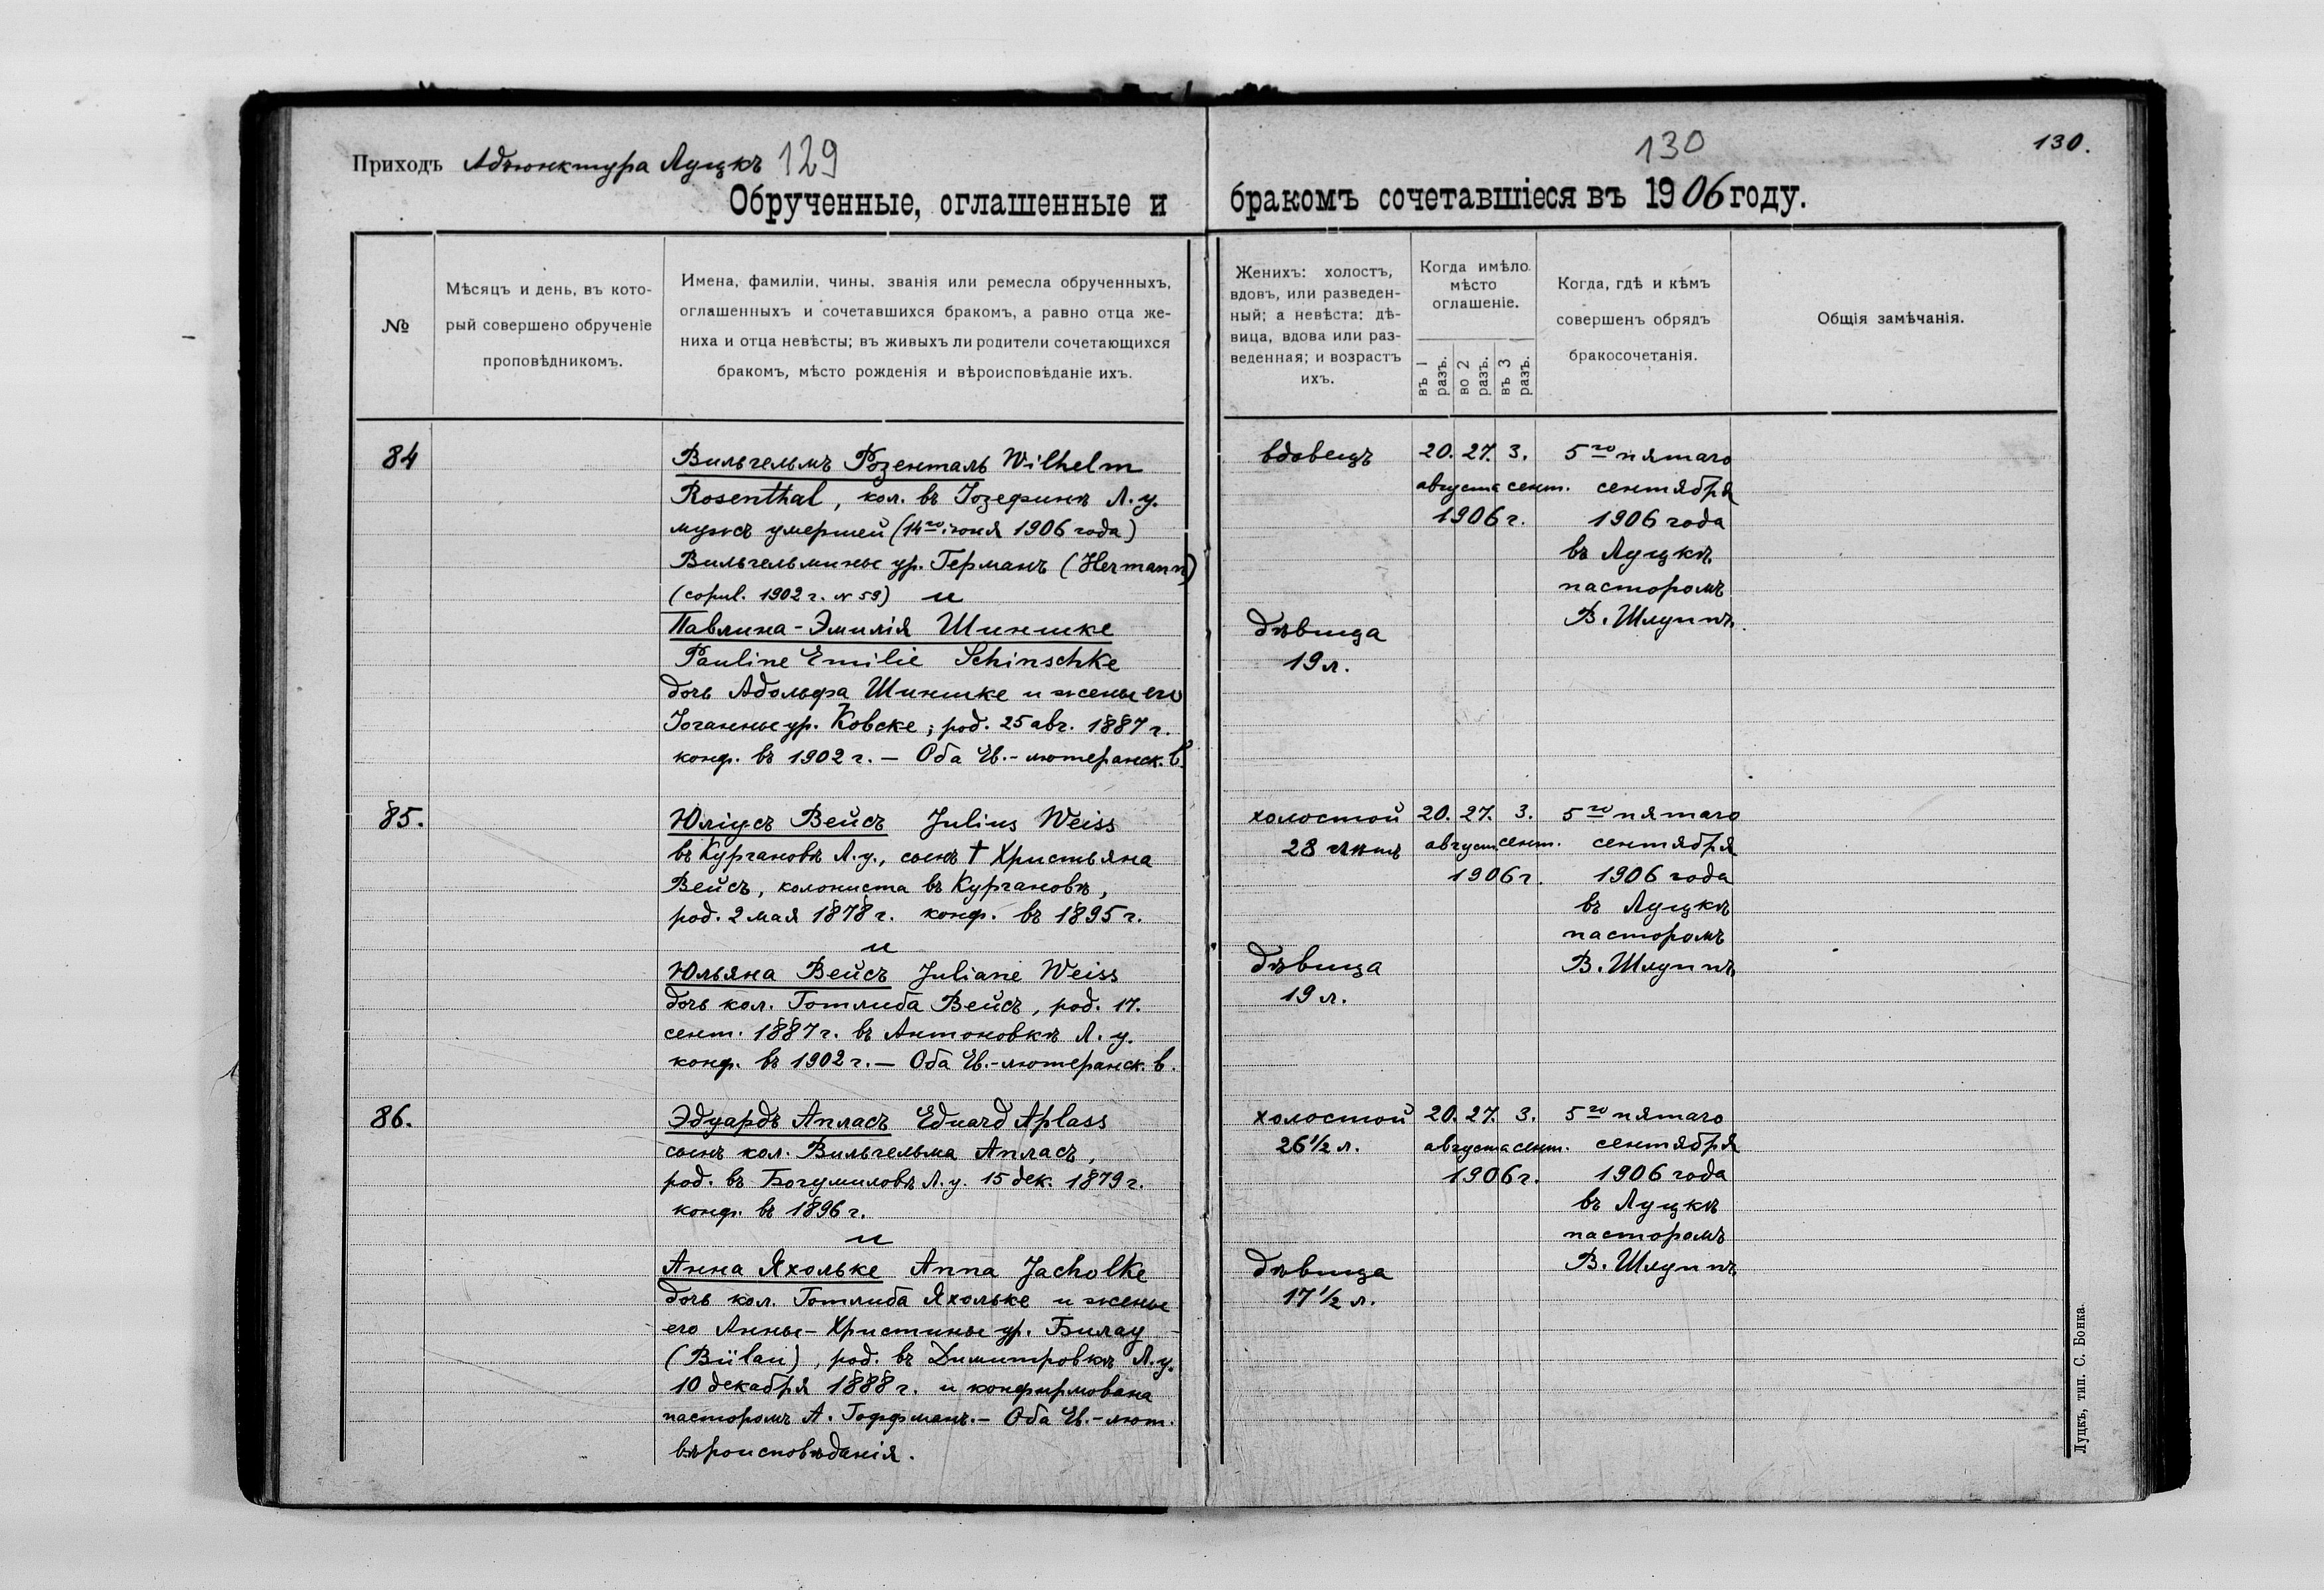 Приходъ Адъюнктура Луцкъ 129
Обрученные, оглашенные и
№
Мѣсяцъ и день, въ кото-
рый совершено обрученіе
проповѣдникомъ.
Имена, фамиліи, чины, званія или ремесла обрученныхъ,
оглашенныхъ и сочетавшихся бракомъ, а равно отца же-
ниха и отца невѣсты; въ живыхъ ли родители сочетающихся
бракомъ, мѣсто рожденія и вѣроисповѣданіе ихъ.
84
Вильгельмъ Розенталь Wilhelm
Rosenthal, кол. въ Іозефинѣ Л. у.
мужъ умершей (14го іюня 1906 года)
Вильгельмины ур. Германъ (Hermann)
(copul. 1902 г. № 59) и
Павлина-Эмилія Шиншке
Pauline Emilie Schinschke
дочь Адольфа Шиншке и жены его
Іоганны ур. Ковске; род. 25 авг. 1887 г.
конф. въ 1902 г. — Оба Ев.-лютеранск. в.
85.
Юліусъ Вейсъ Julius Weiss
въ Кургановѣ Л. у., сынъ † Христьяна
Вейсъ, колониста въ Кургановѣ,
род. 2 мая 1878 г. конф. въ 1895 г.
и
Юльяна Вейсъ Juliane Weiss
дочь кол. Готлиба Вейсъ, род. 17.
сент. 1887 г. въ Антоновкѣ Л. у.
конф. въ 1902 г. — Оба Ев.-лютеранск. в.
86.
Эдуардъ Апласъ Eduard Aplass
сынъ кол. Вильгельма Апласъ,
род. въ Богумиловѣ Л. у. 15 дек. 1879 г.
конф. въ 1896 г.
и
Анна Яхольке Anna Jacholke
дочь кол. Готлиба Яхольке и жены
его Анны-Христины ур. Билау
(Bülau), род. въ Димитровкѣ Л. у.
10 декабря 1888 г. и конфирмована
пасторомъ А. Гоффманъ. — Оба Ев.-лют.
вѣроисповѣданія.
130
130.
бракомъ сочетавшіеся въ 1906 году.
Женихъ: холостъ,
вдовъ, или разведен-
ный; а невѣста: дѣ-
вица, вдова или раз-
веденная; и возрастъ
ихъ.
Когда имѣло
мѣсто
оглашеніе.
въ 1 разъ.
во 2 разъ.
въ 3 разъ.
Когда, гдѣ и кѣмъ
совершенъ обрядъ
бракосочетанія.
Общія замѣчанія.
вдовецъ 20. 27. 3. 5го пятаго
августа сент. сентября
1906 г. 1906 года
въ Луцкѣ
пасторомъ
В. Шлуппъ.
дѣвица
19 л.
холостой 20. 27. 3. 5го пятаго
28 лѣтъ август сент. сентября
1906 г. 1906 года
въ Луцкѣ
пасторомъ
дѣвица В. Шлуппъ
19 л.
холостой 20. 27. 3. 5го пятаго
26 1/2 л. августа сент. сентября
1906 г. 1906 года
въ Луцкѣ
пасторомъ
дѣвица В. Шлуппъ
17 1/2 л.
Луцкъ, тип. С. Бонка.